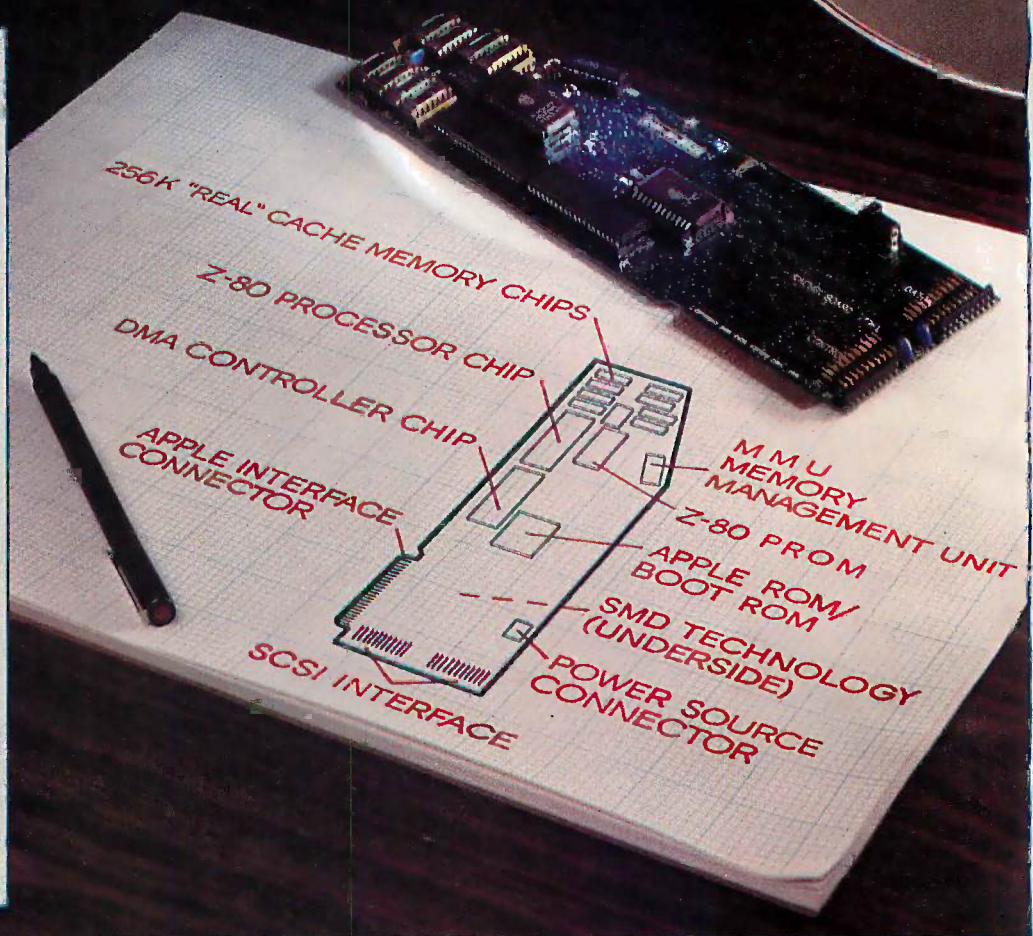 256K "REAL" CACHE MEMORY CHIPS
Z-80 PROCESSOR CHIP
DMA CONTROLLER CHIP
APPLE INTERFACE
CONNECTOR
SCSI INTERFACE
M M U
MEMORY
MANAGEMENT UNIT
Z-80 PROM
APPLE ROM/
BOOT ROM
SMD TECHNOLOGY
(UNDERSIDE)
POWER SOURCE
CONNECTOR